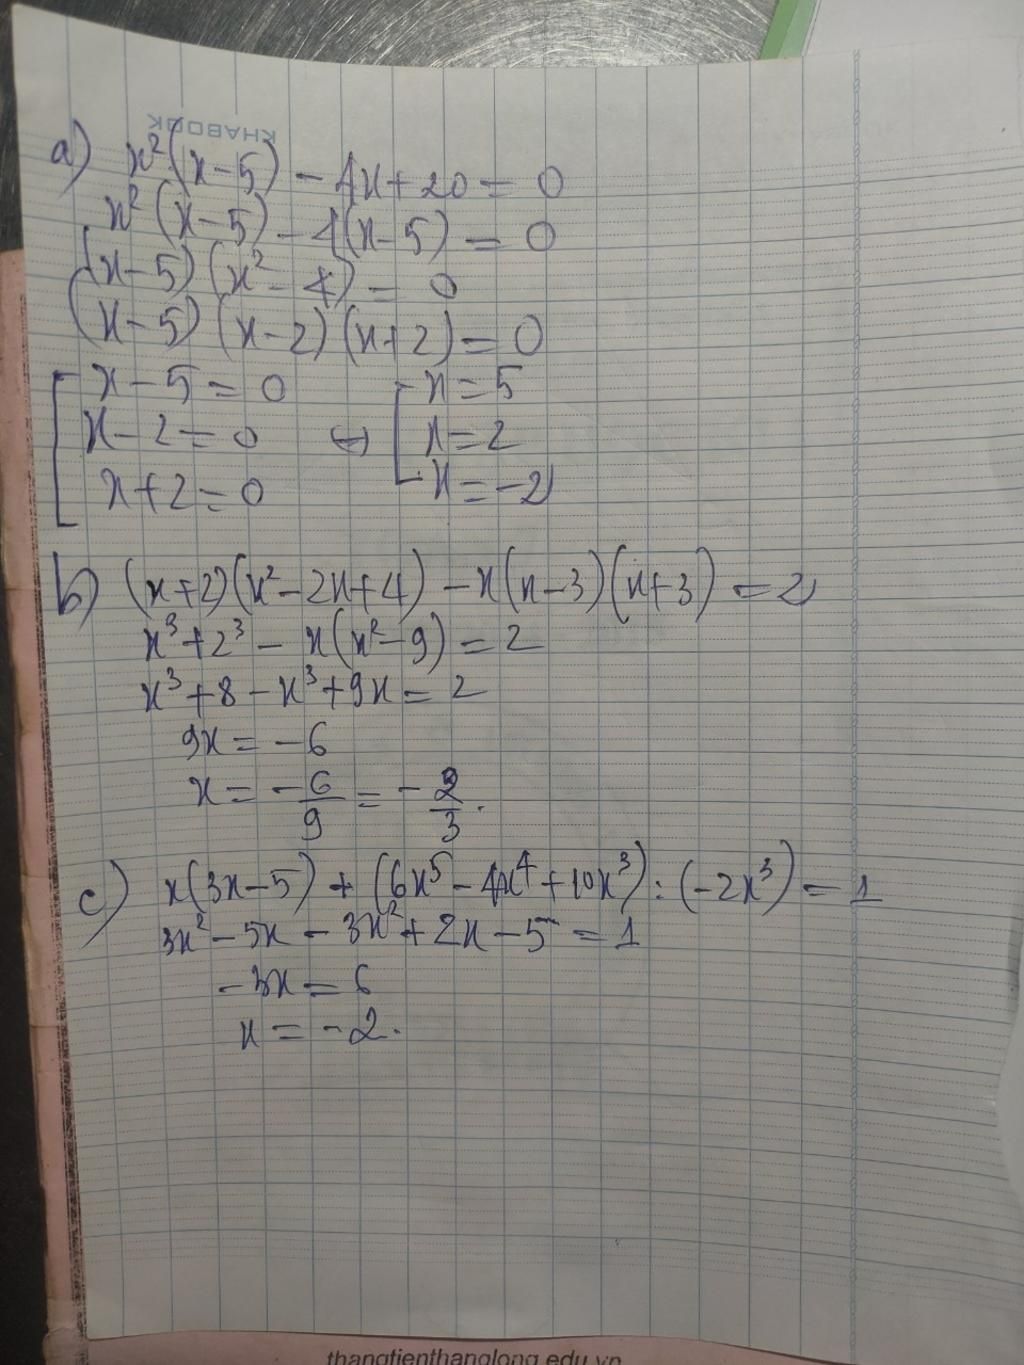 KHABOOK
a) x²(x-5) - 4x+20 = 0
x²(x-5) - 4(x-5) = 0
(x-5)(x²-4) = 0
(x-5)(x-2)(x+2) = 0
[ x-5 = 0
x-2 = 0 ⇔ [ x = 5
x+2 = 0 x = 2
x = -2
b) (x+2)(x²-2x+4) - x(x-3)(x+3) = 2
x³+2³ - x(x²-9) = 2
x³+8-x³+9x = 2
9x = -6
x = -6/9 = -2/3.
c) x(3x-5) + (6x⁵-4x⁴+10x³):(-2x³) = 1
3x²-5x-3x²+2x-5 = 1
-3x = 6
x = -2.
thangtienthanglong.edu.vn